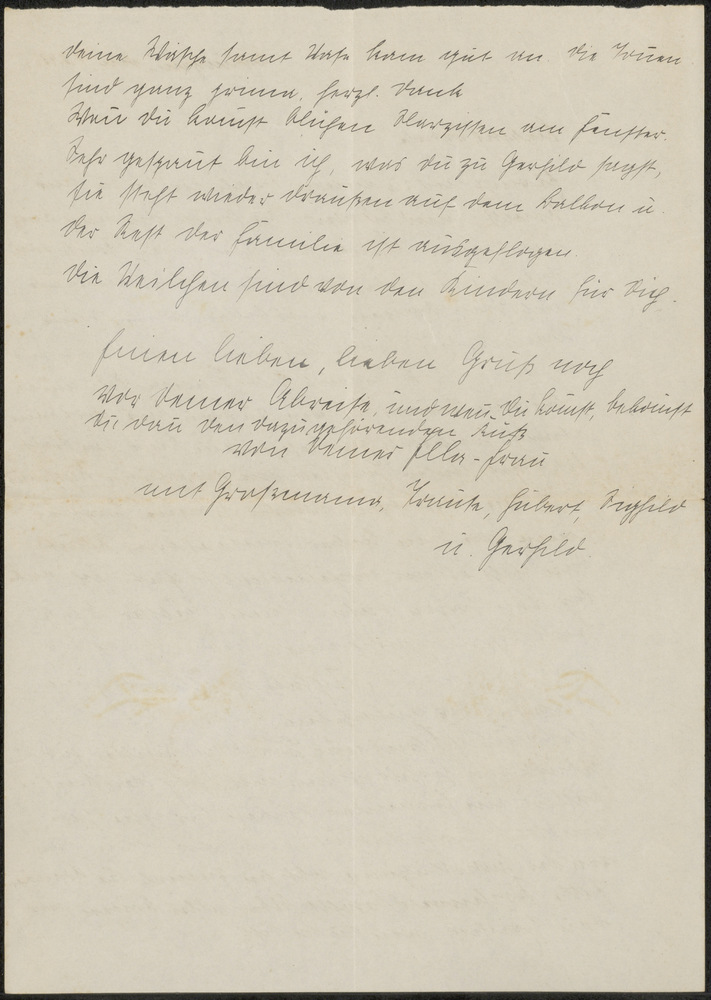 Deine Wäsche samt Vase kam gut an. Die
sind ganz prima, herzl. Dank
Wen̄ Du kom̄st blühen Narzissen am Fenster.
Sehr gespan̄t bin ich, was Du zu Gerhild sagst,
sie steht wieder draußen auf dem Balkon u.
der Rest der Familie ist ausgeflogen.
Die Veilchen sind von den Kindern für Dich.
Einen lieben, lieben Gruß noch
vor Deiner Abreise, und wen̄ Du kom̄st, bekom̄st
Du dan̄ den dazugehörenden Kuß
von Deiner Ella-Frau
mit Großmama, Traute, Hubert, Sighild
u. Gerhild.